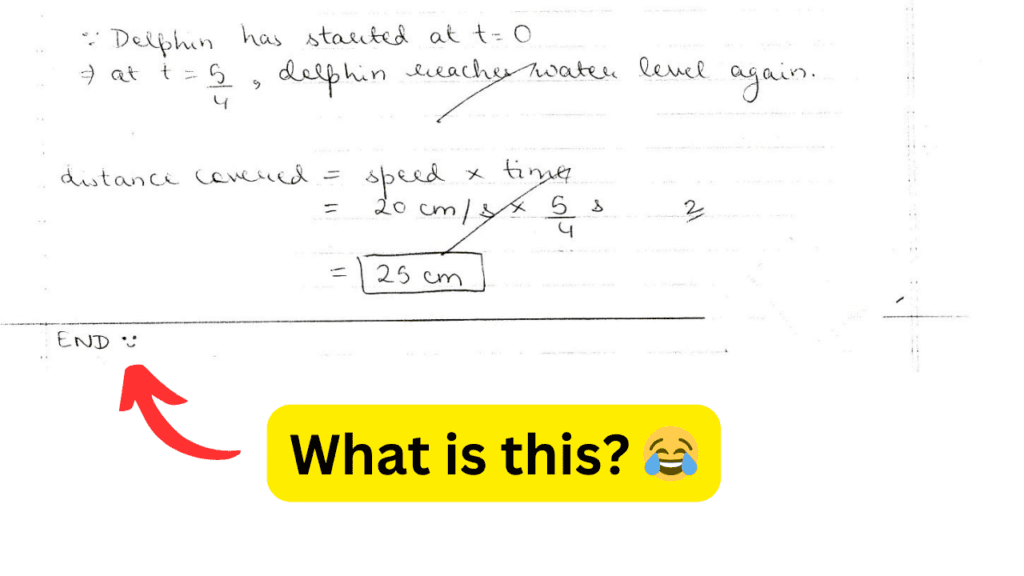 ∵ Delphin has started at t = 0
⇒ at t = 5/4, delphin reaches water level again.
distance covered = speed × time
= 20 cm/s × 5/4 s 2
= 25 cm
END ∵
What is this? 😂